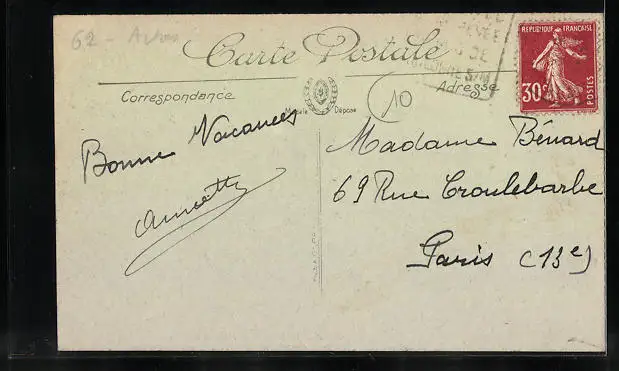 62 -
Carte Postale
RÉPUBLIQUE FRANÇAISE
30c
POSTES
Correspondance
Modèle Déposé
10
Adresse
Bonne Vacances
Madame Bénard
69 Rue Croulebarbe
Paris (13e)